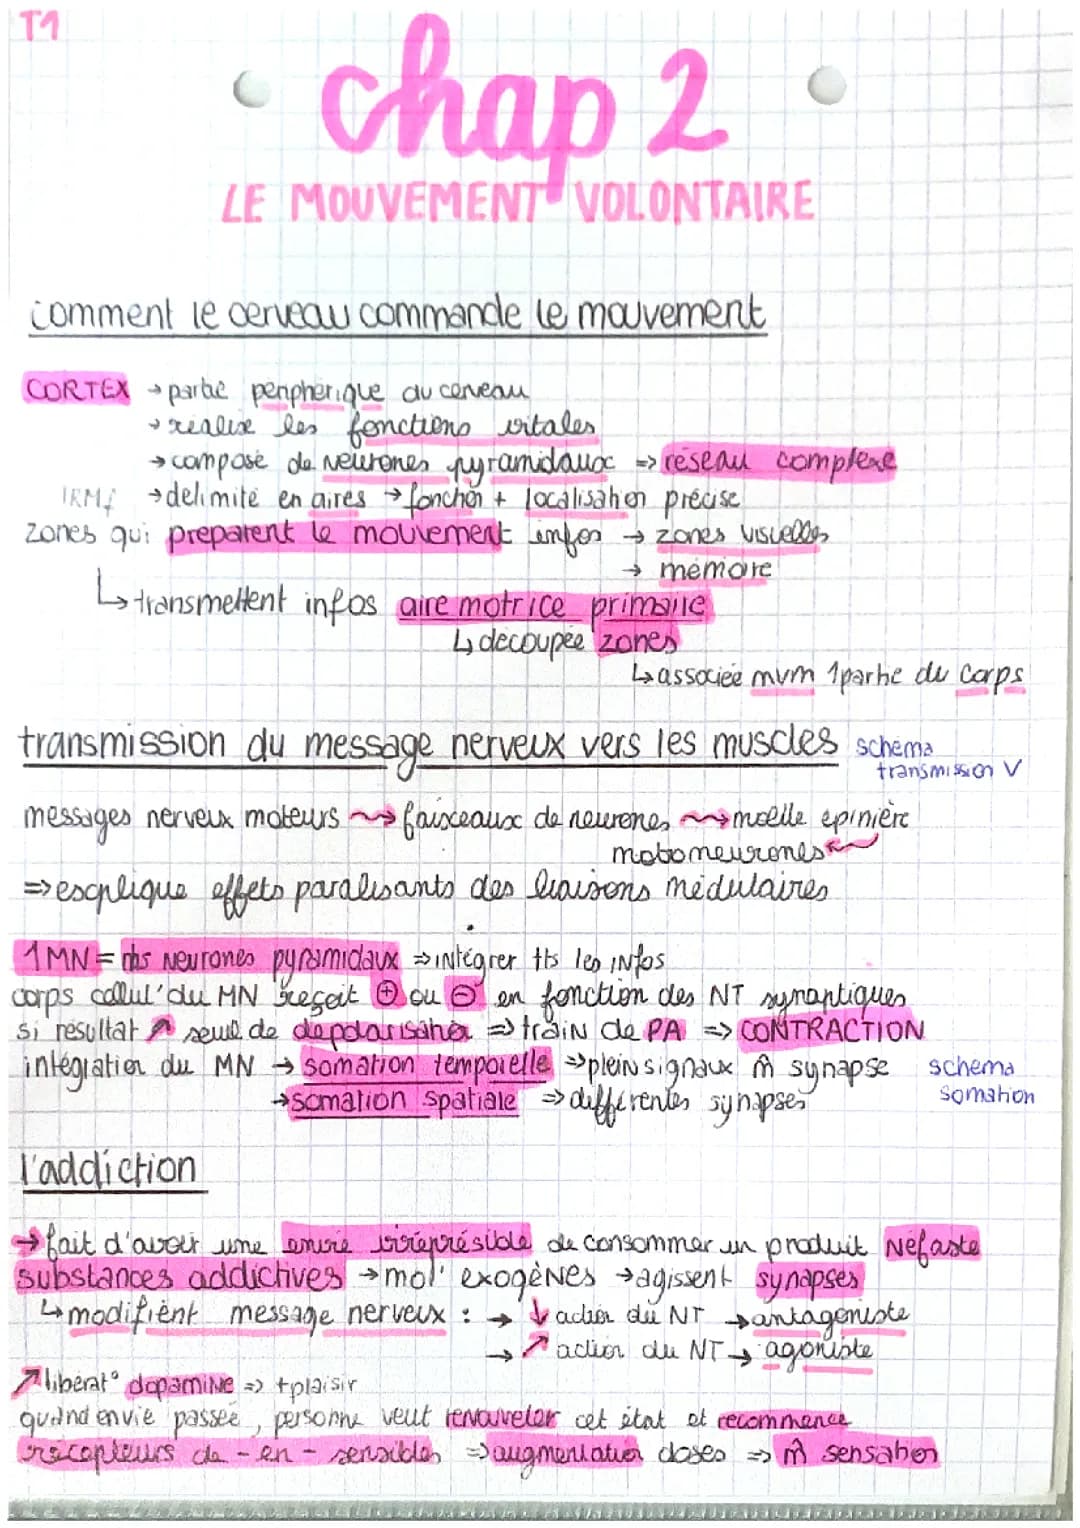 T1
chap 2
LE MOUVEMENT VOLONTAIRE
comment le cerveau commande le mouvement
CORTEX → partie périphérique du cerveau
→ réalise les fonctions vitales
→ composé de neurones pyramidaux => réseau complexe
IRMf → délimité en aires → fonction + localisation précise
zones qui préparent le mouvement infos → zones visuelles
→ mémoire
↳ transmettent infos aire motrice primaire
↳ découpée zones
↳ associée mvm 1 partie du corps
transmission du message nerveux vers les muscles schema
transmission V
messages nerveux moteurs ⇝ faisceaux de neurones ⇝ moelle épinière
motoneurones ⇜
=> explique effets paralisants des liaisons médulaires
1 MN = nbs neurones pyramidaux => intégrer tts les infos
corps cellul' du MN reçoit ⊕ ou ⊖ en fonction des NT synaptiques
si résultat ↗ seuil de dépolarisation => train de PA => CONTRACTION
intégration du MN → somation temporelle => plein signaux m̂ synapse schema
→ somation spatiale => différentes synapses somation
l'addiction
→ fait d'avoir une envie irréprésible de consommer un produit néfaste
substances addictives → mol' exogènes → agissent synapses
↳ modifient message nerveux : → ↓ action du NT → antagoniste
→ ↗ action du NT → agoniste
↗ libérat° dopamine => + plaisir
quand envie passée, personne veut renouveler cet état et recommence
récepteurs de - en - sensibles => augmentation doses => m̂ sensation